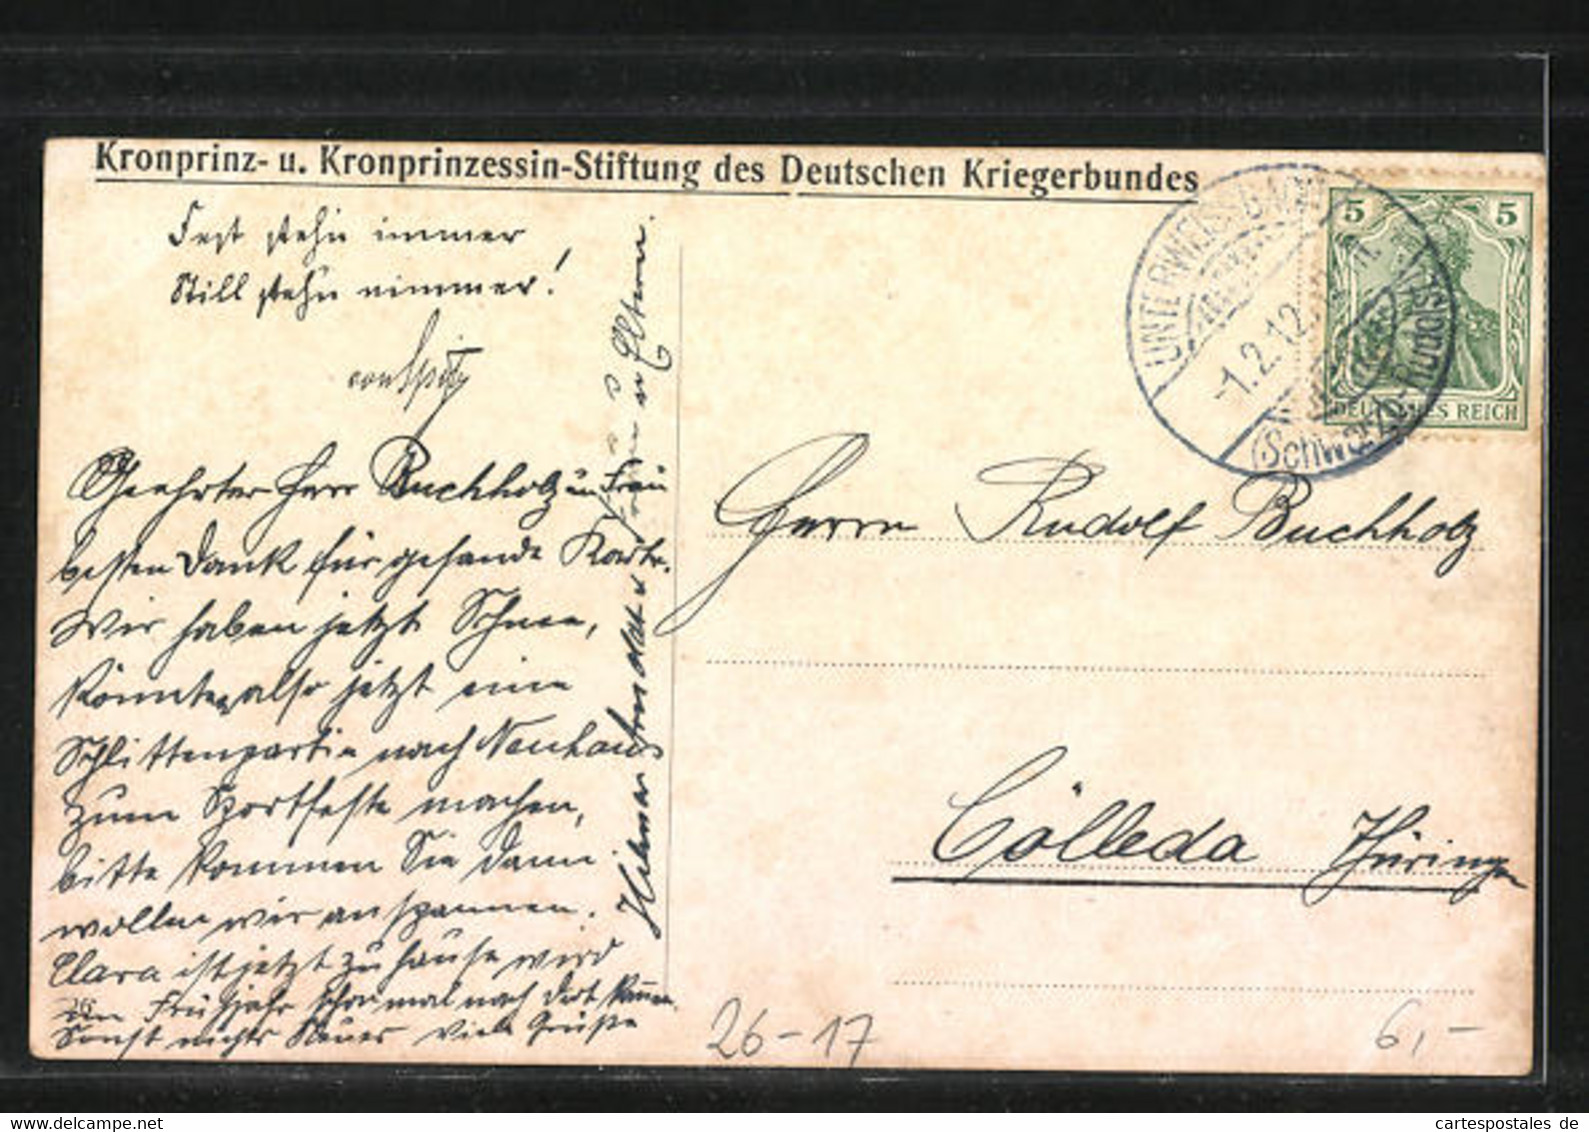 Kronprinz- u. Kronprinzessin-Stiftung des Deutschen Kriegerbundes
Fest stehn immer
Still stehn nimmer!
Geehrter Herr Buchholz u. Frau
besten Dank für gesande Karte.
Wir haben jetzt Schnee,
könnten also jetzt eine
Schlittenpartie nach Neuhaus
zum Sportfeste machen,
bitte kommen Sie dann
wollen wir anspannen.
Clara ist jetzt zu hause wird
im Frühjahr schon mal nach dort kommen
Sonst nichts Neues viele Grüße
u Eltern
UNTERWEISSBACH
-1.2.12
(Schwarzb.-Rudolst.)
5 5
DEUTSCHES REICH
Herrn Rudolf Buchholz
Cölleda Thüringen
26-17
6,-
cartespostales de